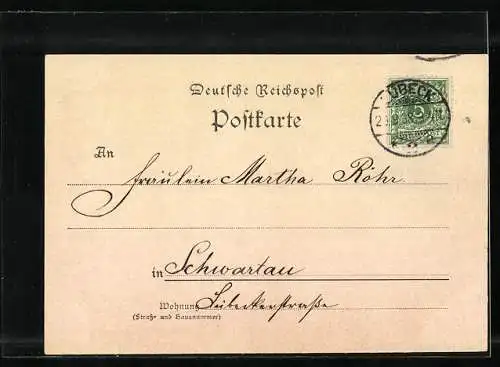 Deutsche Reichspost
Postkarte
LÜBECK
5
An
Fräulein Martha Röhr.
in Schwartau
Wohnung Lübeckerstraße
(Straße und Hausnummer)